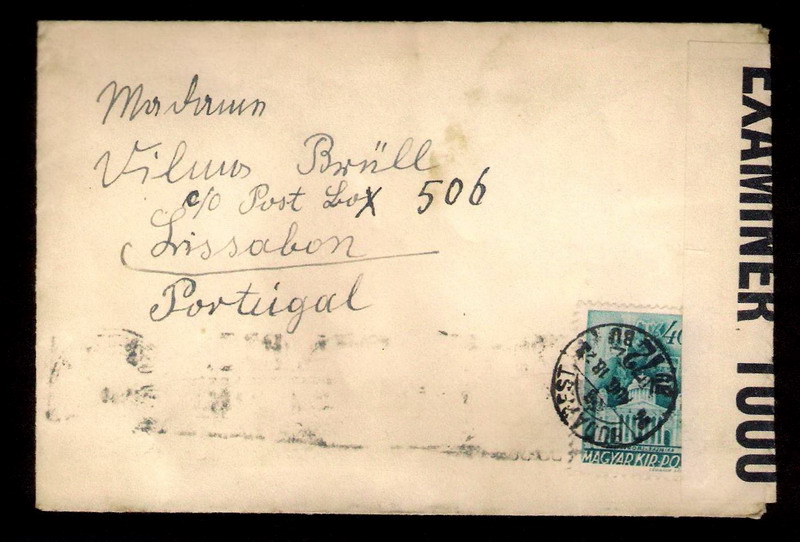 Madame
Vilmos Brüll
c/o Post Box 506
Lissabon
Portugal
EXAMINER 1000
BUDAPEST
72
MAGYAR KIR·PO